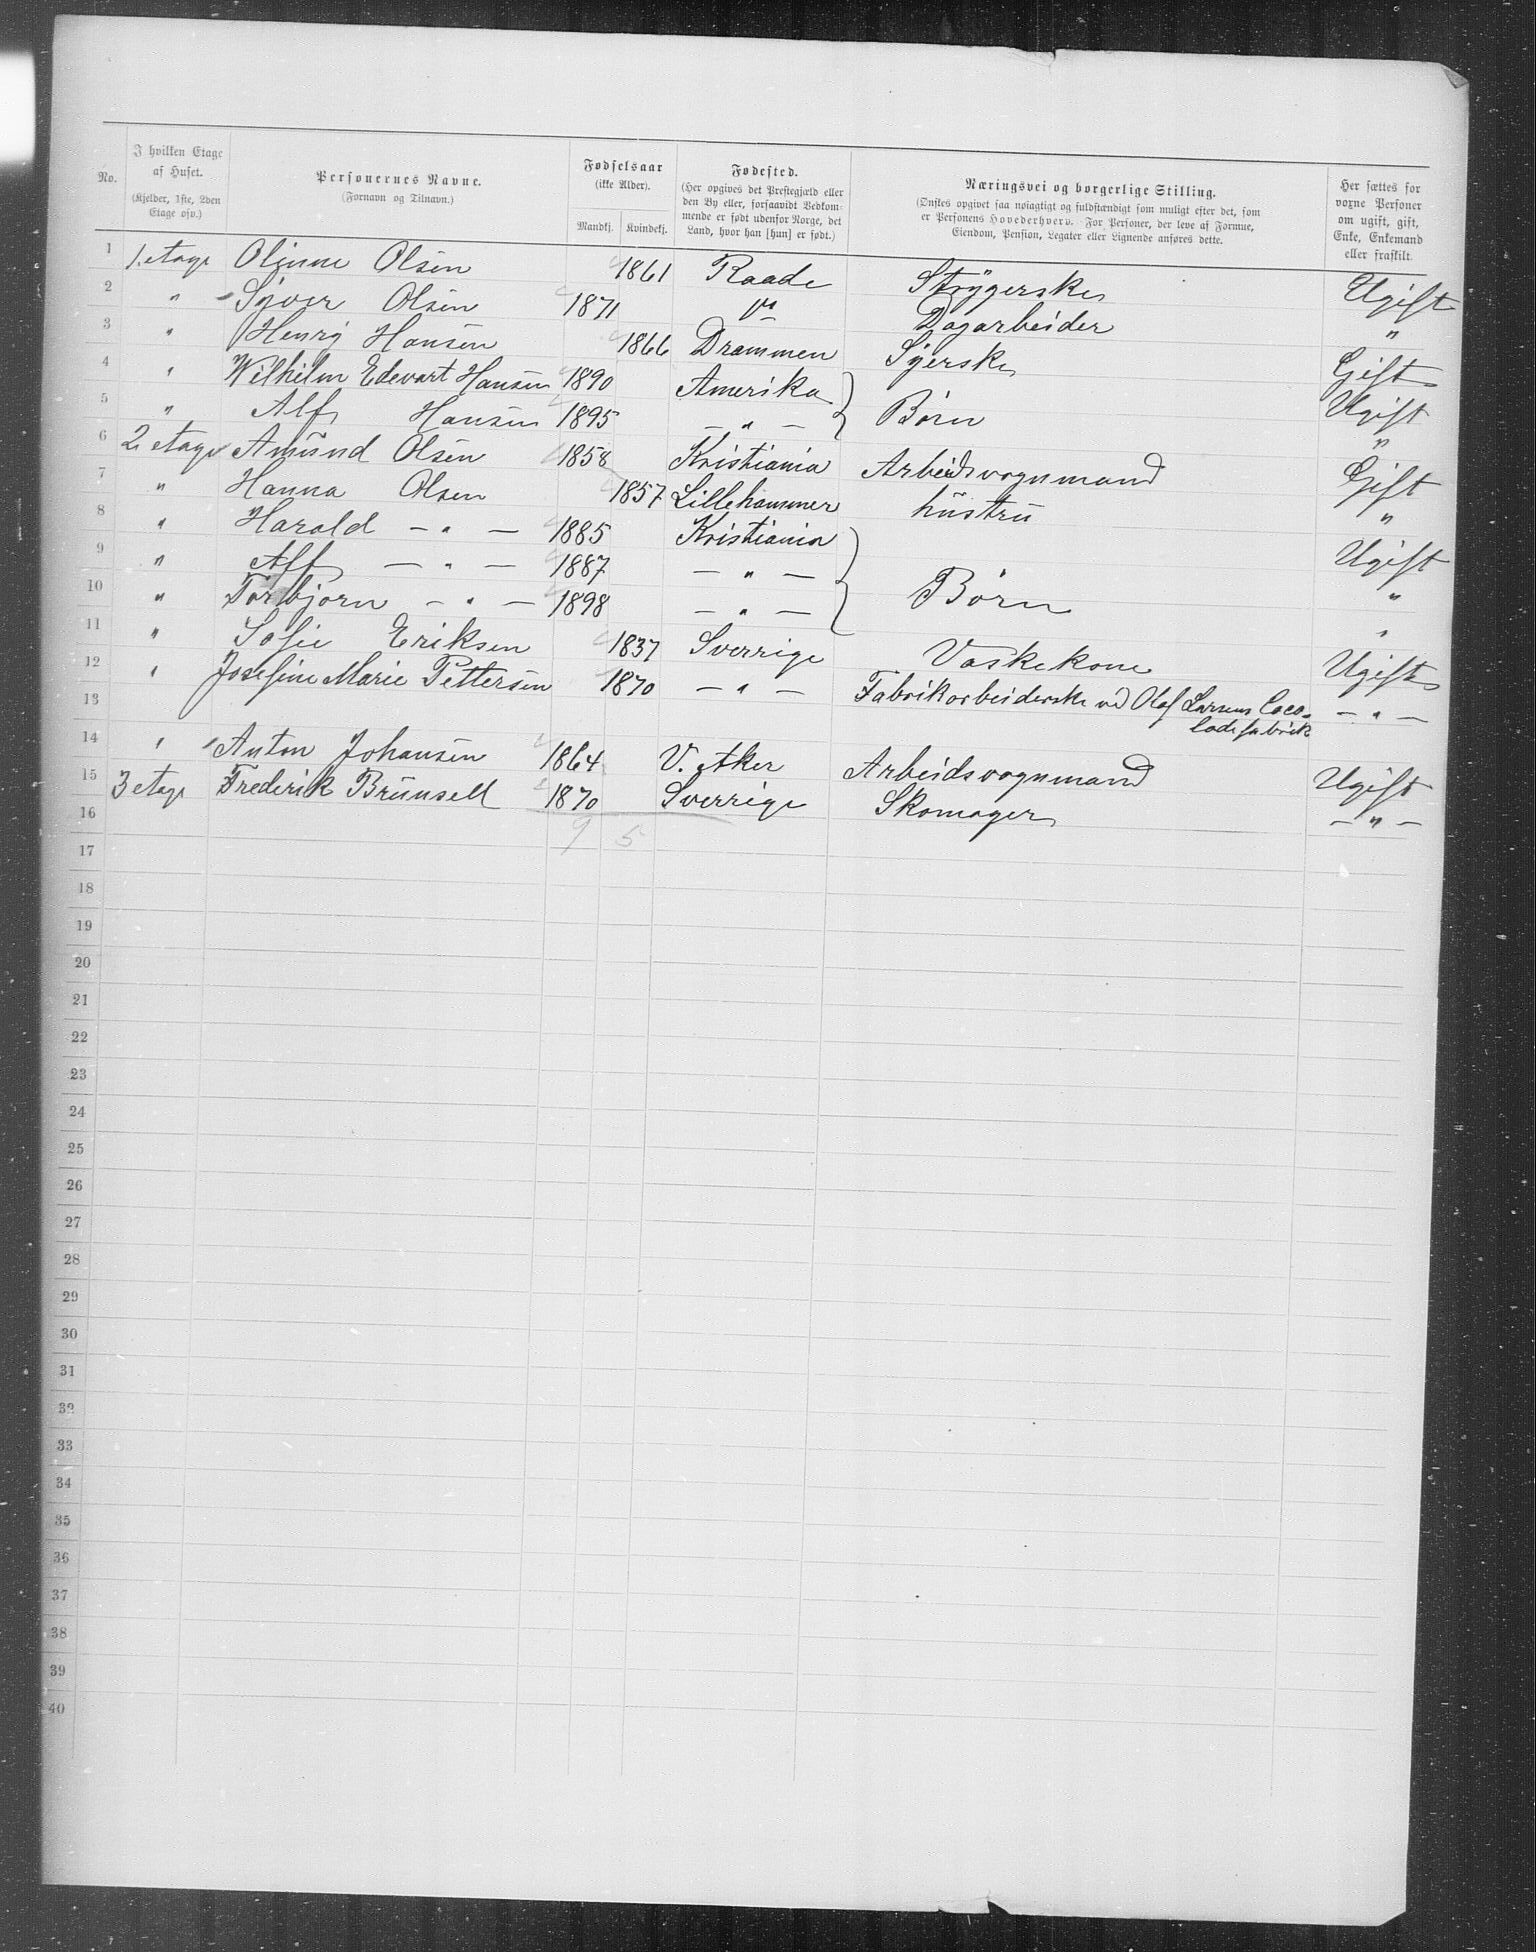 No.
I hvilken Etage af Huset.
(Kjelder, 1ste, 2den Etage osv.)
Personernes Navne.
(Fornavn og Tilnavn.)
Fødselsaar
(ikke Alder).
Mandkj. Kvindekj.
Fødested.
(Her opgives det Prestegjæld eller den By eller, forsaavidt Vedkommende er født udenfor Norge, det Land, hvor han [hun] er født.)
Næringsvei og borgerlige Stilling.
(Ønskes opgivet saa nøiagtigt og fuldstændigt som muligt efter det, som er Personens Hovederhverv. For Personer, der leve af Formue, Eiendom, Pension, Legater eller Lignende anføres dette.
Her sættes for voxne Personer om ugift, gift, Enke, Enkemand eller fraskilt.
1 1. etage Olsen 1861 Raade Strÿgerske Ugift
2 " Olsen 1871 Dagarbeider "
3 " Henrÿ Hansen 1866 Drammen Sÿerske Gift
4 " Wilhilm Edevart Hansen 1890 Amerika } Børn Ugift
5 " Alf Hansen 1895 — " — "
6 2. etage Amund Olsen 1858 Kristiania Arbeidsvognmand Gift
7 " Hanna Olsen 1857 Lillehammer hustru "
8 " Harald — " — 1885 Kristiania } Børn Ugift
9 " Alf — " — 1887 — " — "
10 " Torbjørn — " — 1898 — " — "
11 " Sofie Eriksen 1837 Sverrige Vaskekone Ugift
12 " Josefine Marie Pettersen 1870 — " — Fabrikarbeiderske ved Olaf Larsens Coco- — " —
13 ladefabrik
14 " Anton Johansen 1864 V. Aker Arbeidsvognmand Ugift
15 3 etage Frederik Brunsell 1870 Sverrige Skomager — " —
16 9 5
17
18
19
20
21
22
23
24
25
26
27
28
29
30
31
32
33
34
35
36
37
38
39
40